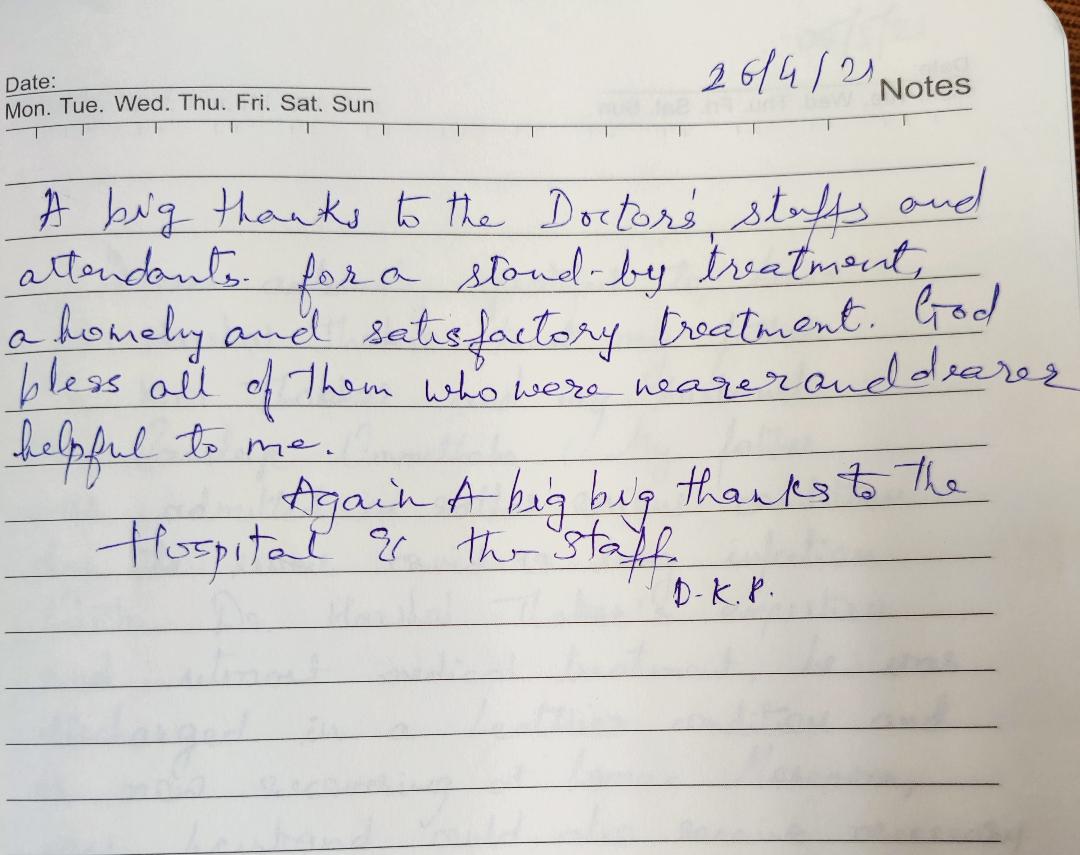 26/4/21
Date:
Notes
Mon. Tue. Wed. Thu. Fri. Sat. Sun
A big thanks to the Doctor's, staffs and
attendants. for a stand-by treatment,
a homely and satisfactory treatment. God
bless all of them who were nearer and dearer
helpful to me.
Again A big big thanks to the
Hospital & the staff.
D.K.P.